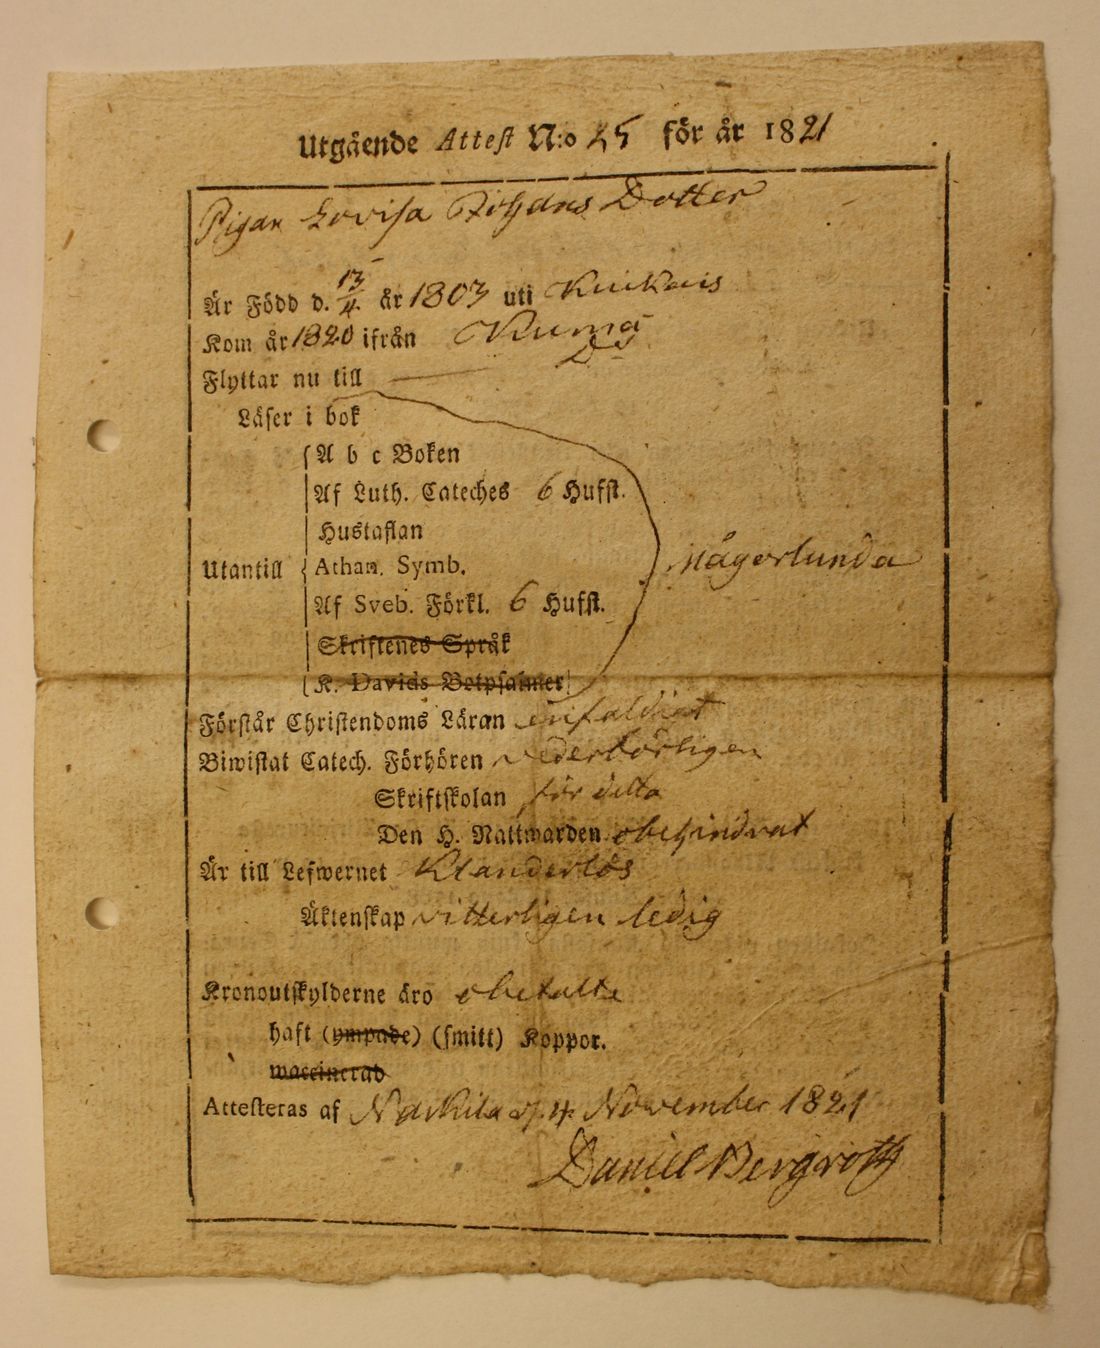 Utgående Attest N:o 25 för år 1821
Pigan Lovisa Johans Dotter
Är Född d. 13/4 år 1803 uti
Kom år 1820 ifrån Kumo
Flyttar nu till Do
Läser i bok
A b c Boken
Af Luth. Cateches 6 Hufst.
Hustaflan
Utantill Athan. Symb. någorlunda
Af Sveb. Förkl. 6 Hufst.
Skriftenes Språk
K. Davids Botpsalmer
Förstår Christendoms Läran enfaldigt
Biwistat Catech. Förhören vederbörligen
Skriftskolan för detta
Den H. Nattwarden obehindrat
Är till Lefwernet Klanderlös
Äktenskap vitterligen ledig
Kronoutskylderne äro obetalte
haft (ympade) (smitt) Koppor.
waccinerad
Attesteras af Nakkila d. 4 November 1821
Daniel Bergroth